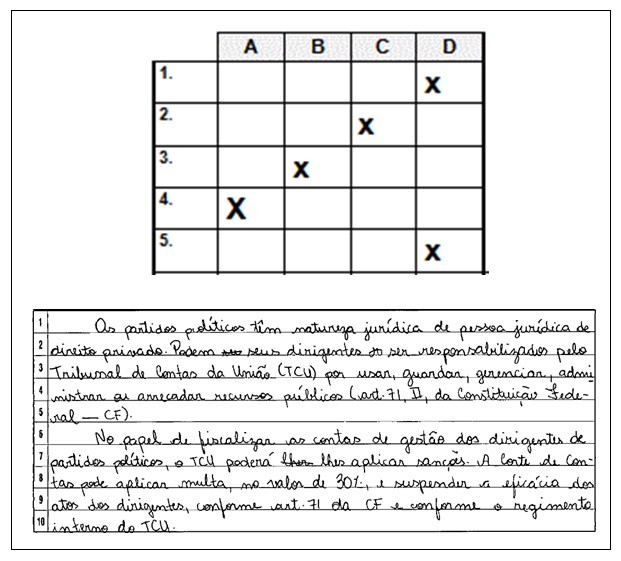 A B C D
1. X
2. X
3. X
4. X
5. X
1 Os partidos políticos têm natureza jurídica de pessoa jurídica de
2 direito privado. Podem seus dirigentes ser responsabilizados pelo
3 Tribunal de Contas da União (TCU) por usar, guardar, gerenciar, admi-
4 nistrar ou arrecadar recursos públicos (art. 71, II, da Constituição Fede-
5 ral — CF).
6 No papel de fiscalizar as contas de gestão dos dirigentes de
7 partidos políticos, o TCU poderá lhes aplicar sanções. A Corte de Con-
8 tas pode aplicar multa, no valor de 30%, e suspender a eficácia dos
9 atos dos dirigentes, conforme art. 71 da CF e conforme o regimento
10 interno do TCU.